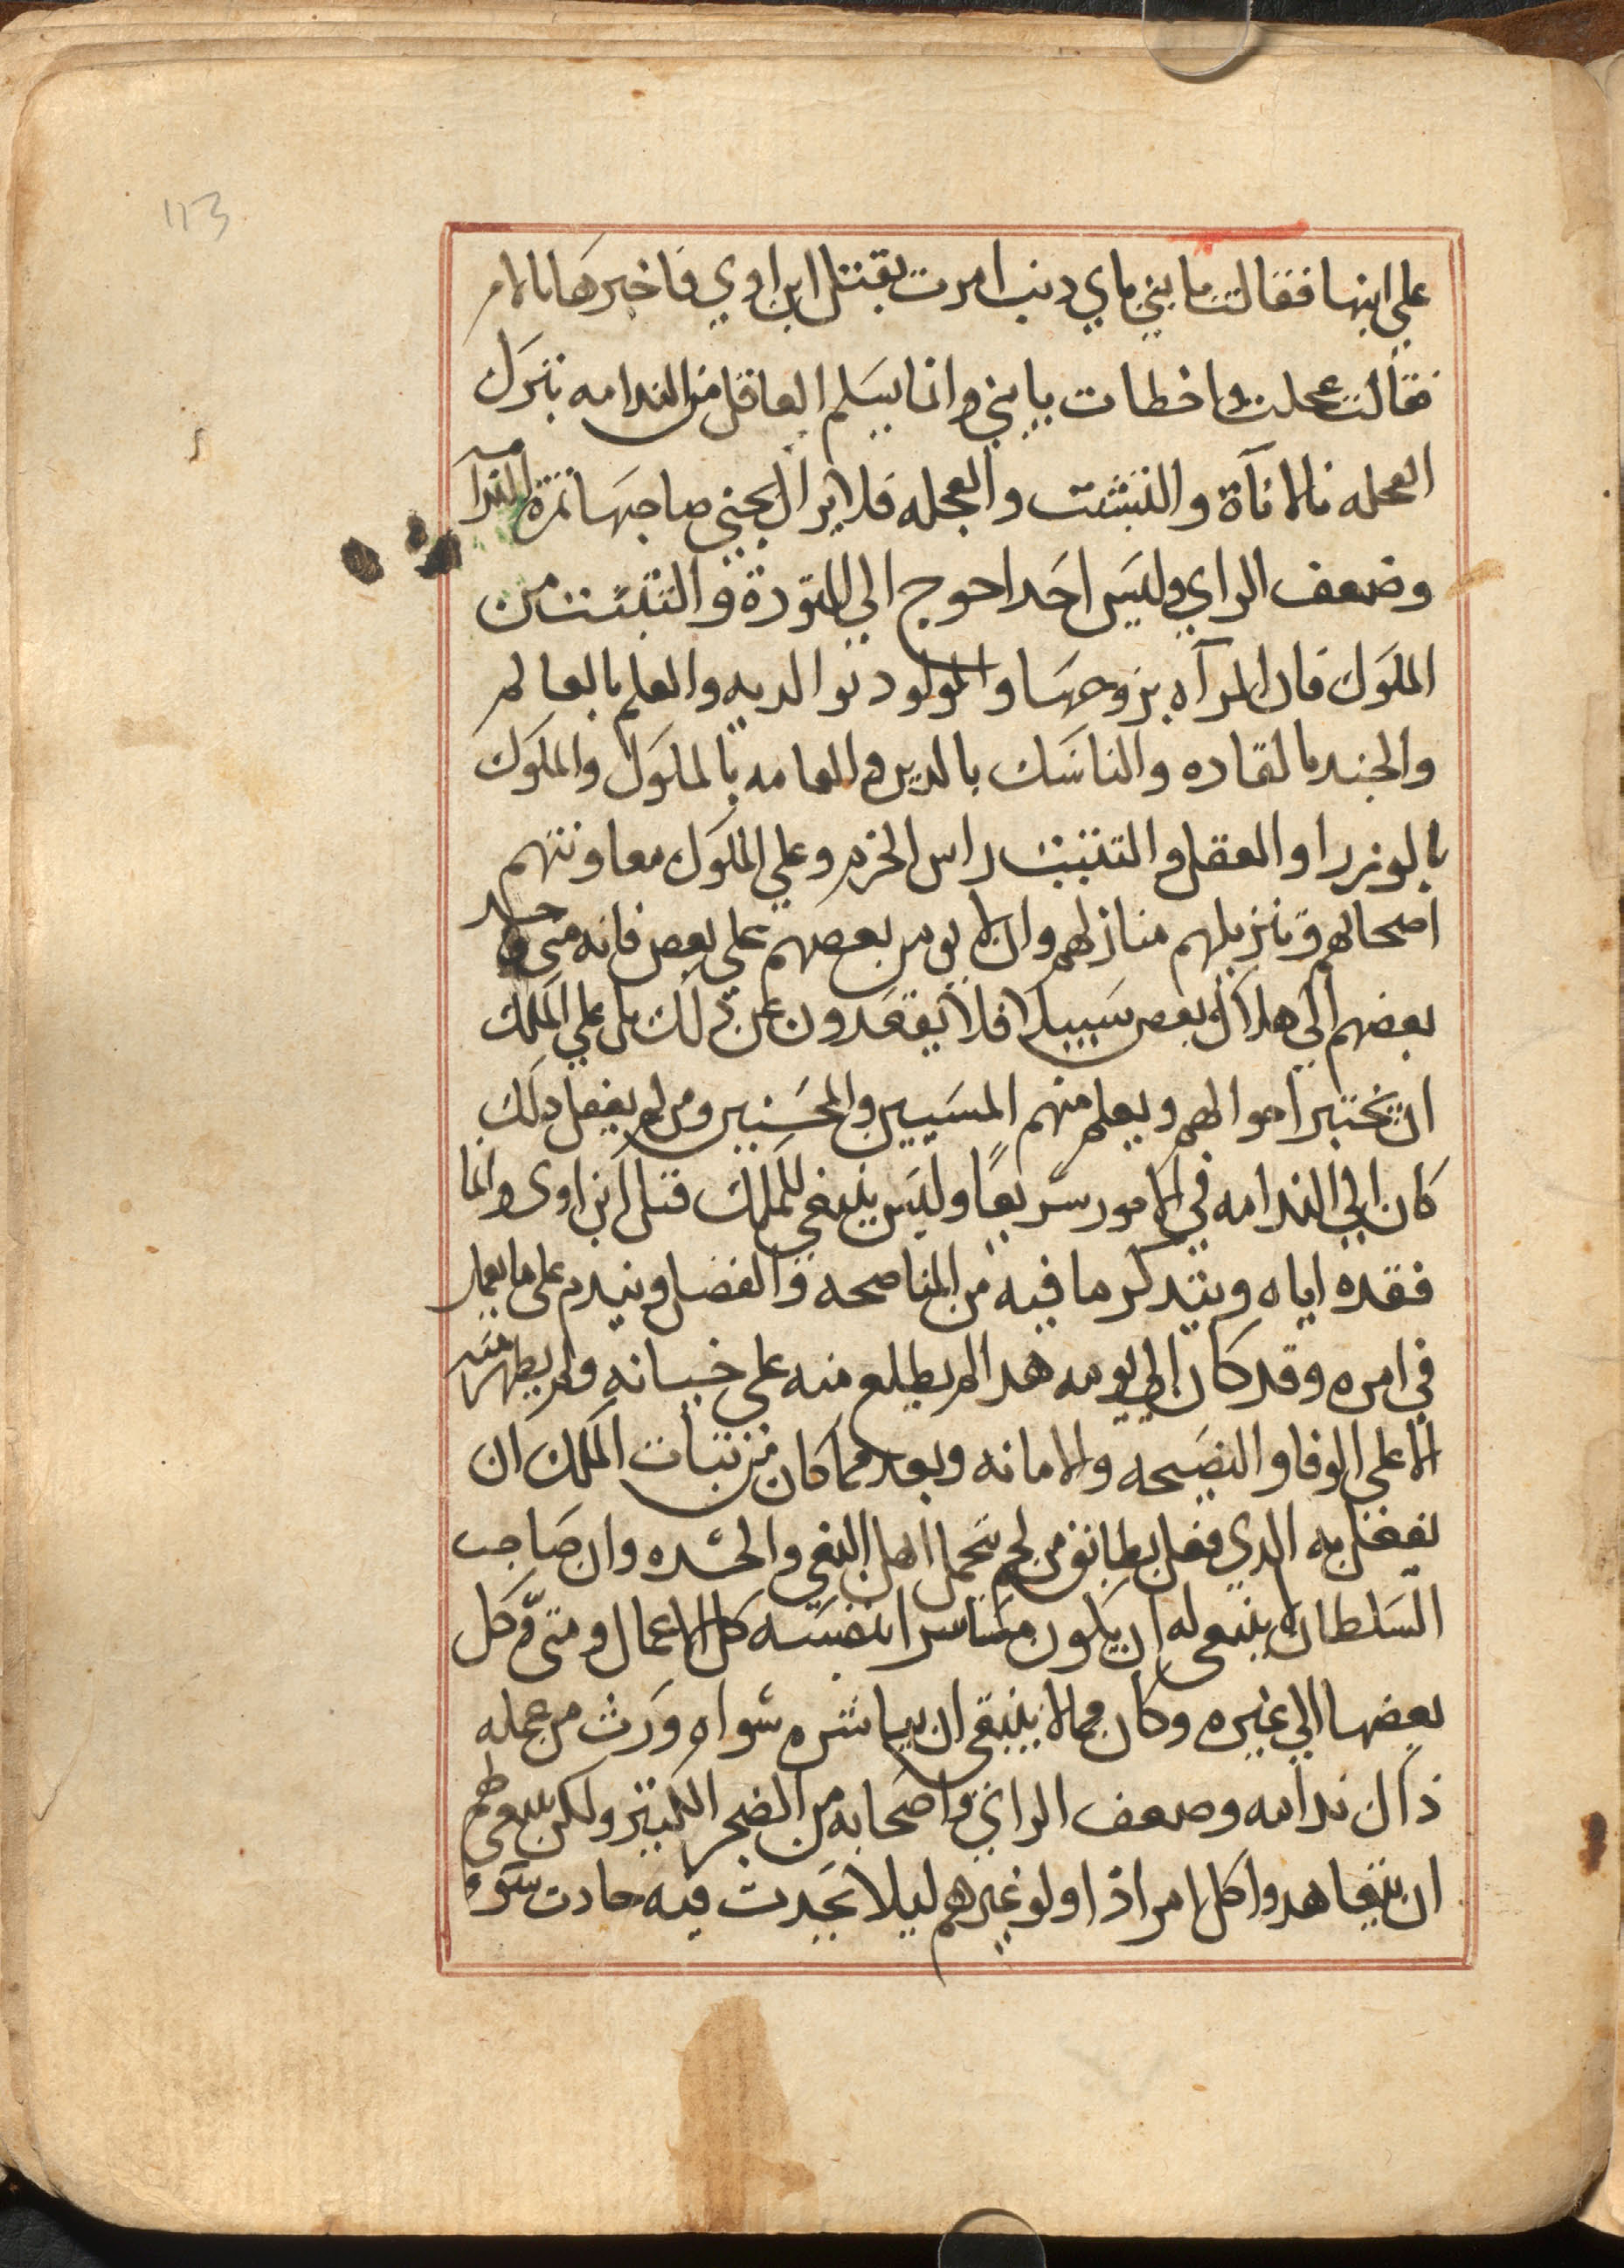 113
علي ابنها فقالت يا بني باي دنب امرت بقتل ابن اوي فاخبرها بالامر
فقالت عجلت واخطات يا بني وانما يسلم العاقل من الندامه بترك
العجله بالاناة والتثبت والعجله فلا يزال يجني صاحبها ثمرة الندامه
وضعف الراي وليس احد احوج الي التودة والتثبت من
الملوك فان المرآه بزوجها والمولود بوالديه والعلم بالعالم
والجند بالقاده والناسك بالدين والعامه بالملوك والملوك
بالوزرا والعقل والتثبت راس الحزم وعلي الملوك معاونتهم
اصحابهم وتنزيلهم منازلهم وان لا يومن بعضهم علي بعض فانه متي وجد
بعضهم الي هلاك بعض سبيلا فلا يقعدون عن ذلك بل علي الملك
ان يختبر احوالهم ويعلم منهم المسيين والمحسنين ومن لم يفعل دلك
كان الي الندامه في الامور سريعًا وليس ينبغي للملك قتل ابن اوى وانما
فقده اياه ويتدكر ما فيه من المناصحه والفضل ويندم على ما يعمل
في امره وقد كان الي يومه هدا لم يطلع منه علي خيانه ولم يظهر منه
الا على الوفا والنصيحه والامانه وبعد فما كان من تبات الملك ان
يفعل به الدي فعل بطابق من لحم تحمل اهل البغي والحسده وان صاحب
السلطان ينبغي له ان يكون مباشرا بنفسه كل الاعمال ومتى وكل
بعضها الي غيره وكان مما لا ينبغي ان يباشره سواه ورث من عمله
ذاك ندامه وضعف الراي واصحابه من الضجر الكبير ولكن ينبغى لهم
ان يتعاهدوا كل امر اذا ولو غيرهم ليلا يحدث فيه حادث سوو